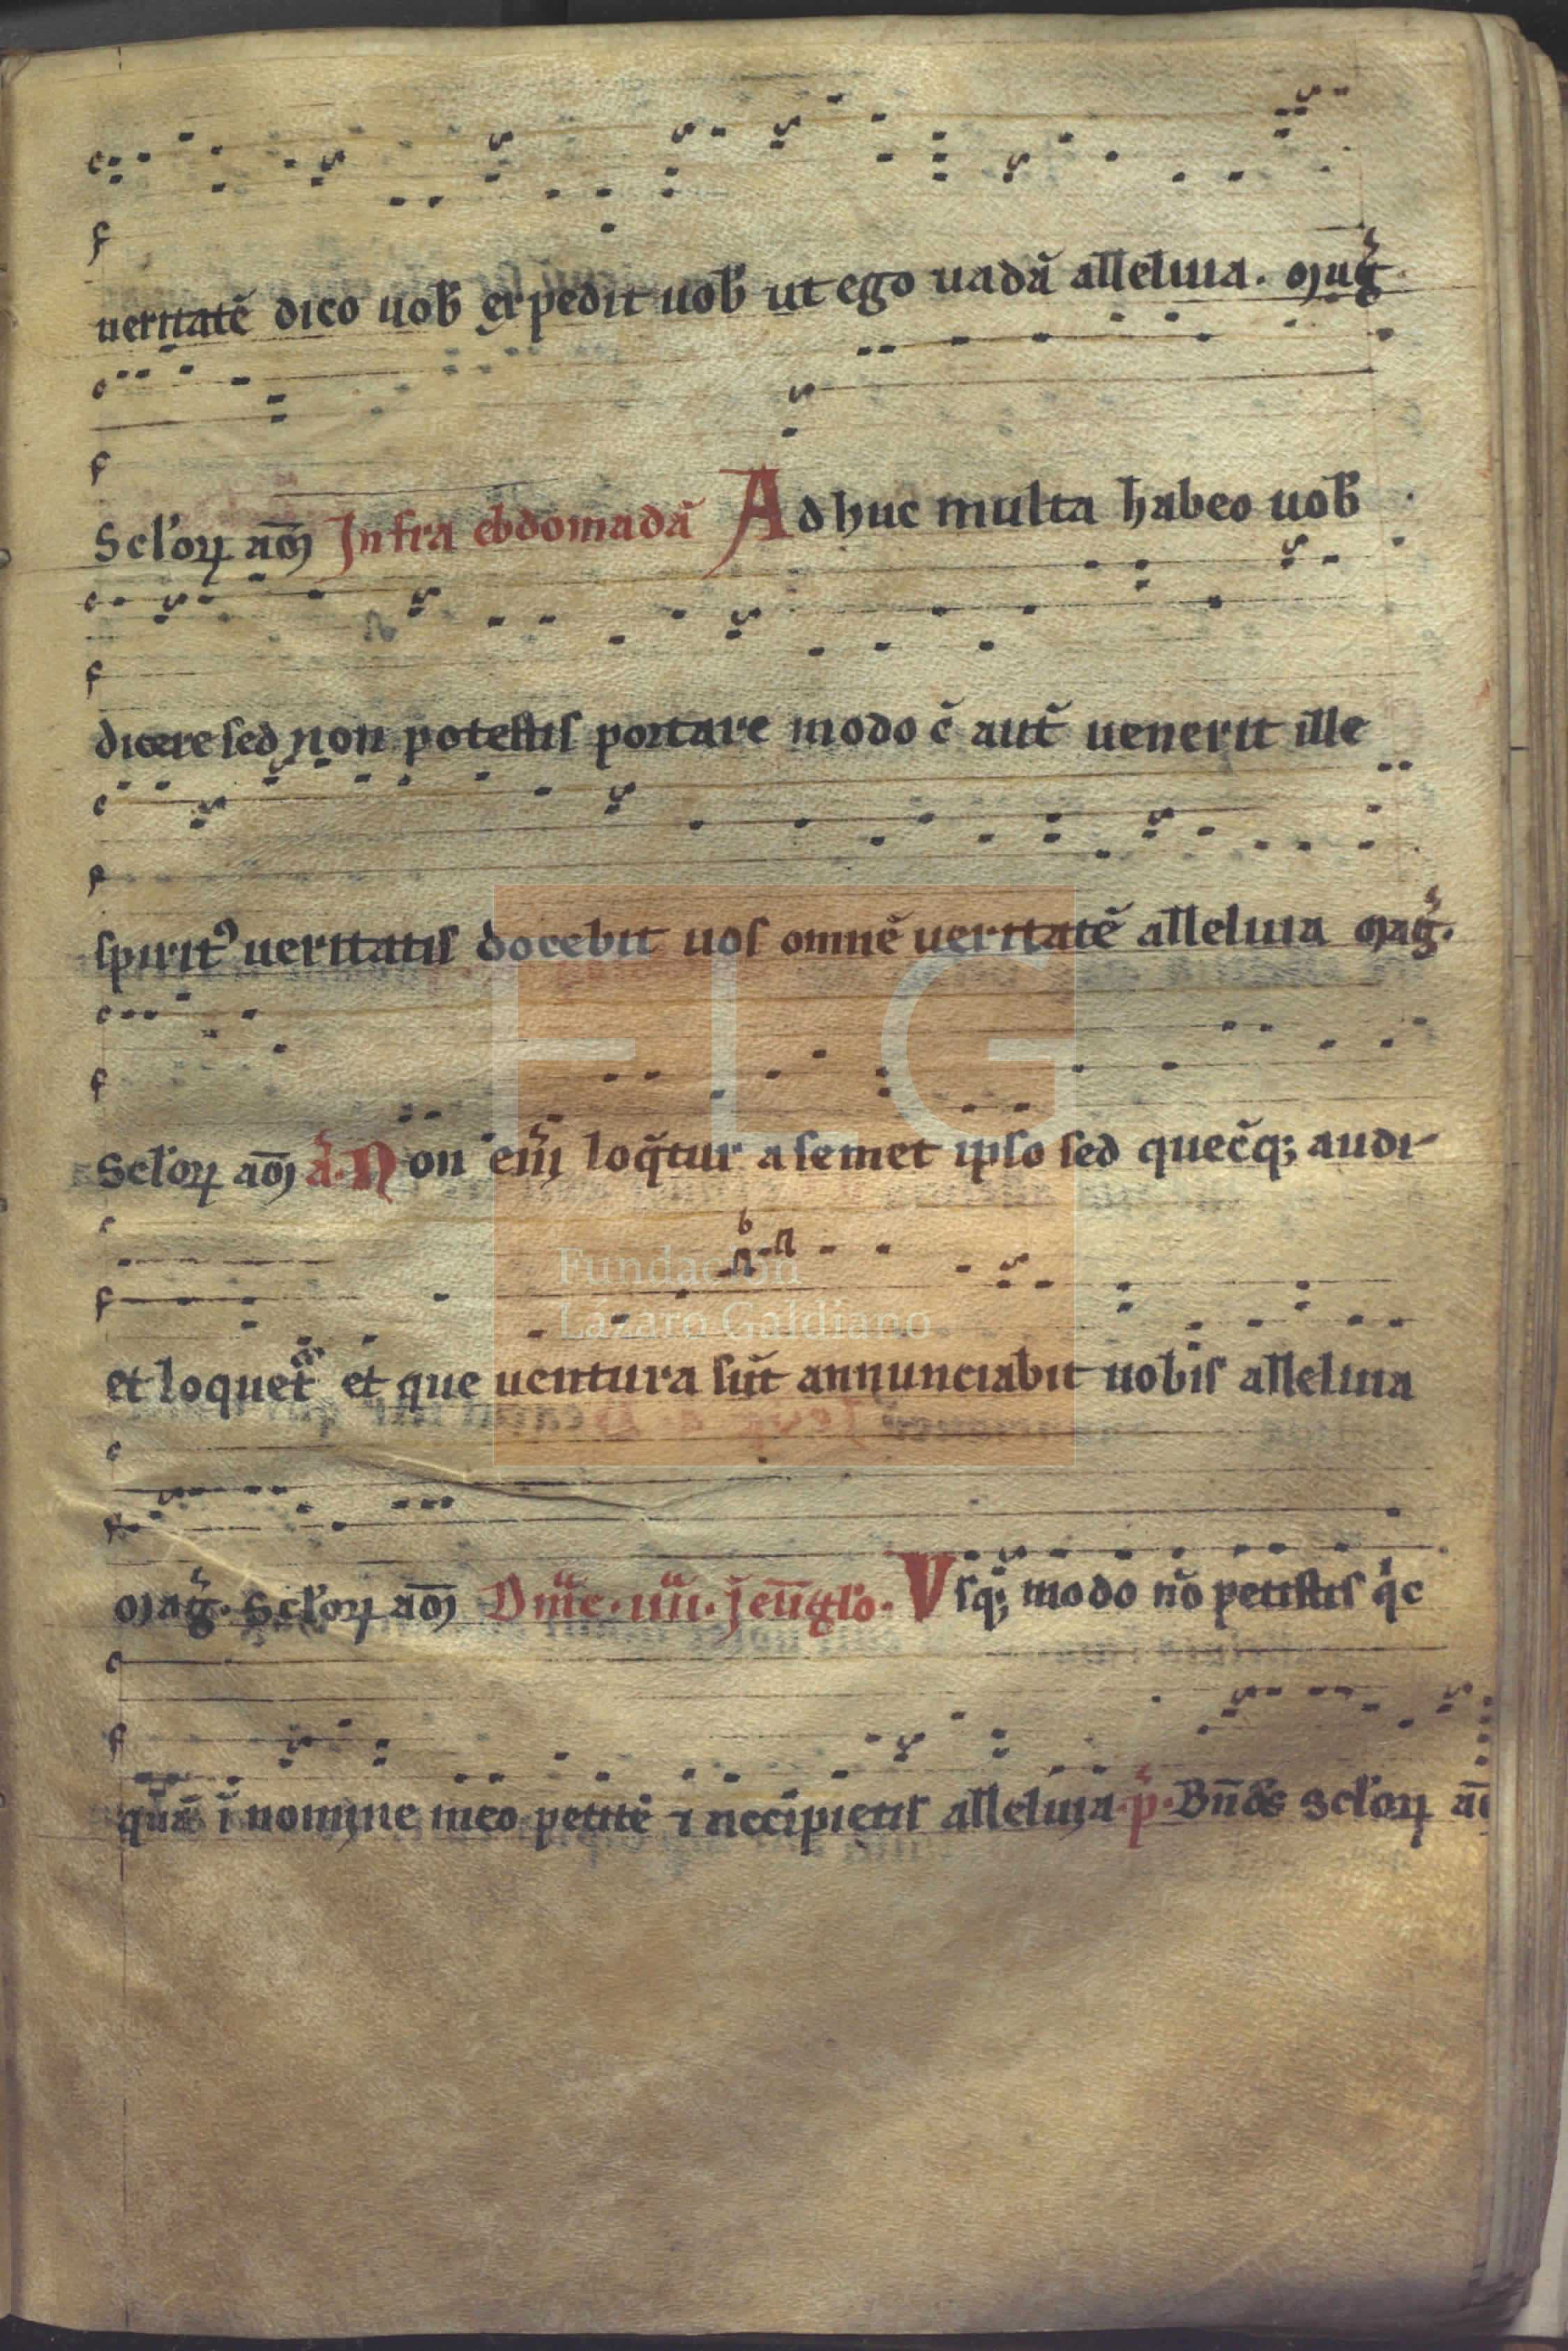 ueritatē dico uob̄ expedit uob̄ ut ego uadā alleluia. Mag̃
Sclor̄ am̄ Infra ebdomadā Adhuc multa habeo uob̄
dicere sed non potestis portare modo c̄ aut̄ uenerit ille
spirit᾽ ueritatis docebit uos omnē ueritatē alleluia Mag̃.
Sclor̄ am̄ a᷒. Non eni̅ loq̄tur a semet ipso sed quec̄q; audi-
et loquet᷑ et que uentura sūt annunciabit uobis alleluia
Mag̃. Sclor̄ am̄ Dm̄c. iiii. j eūglo. Vsq; modo nō petistis q̍c
quā ī nomine meo petite ⁊ accipietis alleluia. p᷒. Bn̄ds Sclor̄ am̄
FLG
Fundación
Lázaro Galdiano